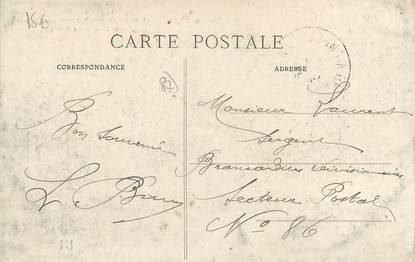 15€
CARTE POSTALE
CORRESPONDANCE
ADRESSE
Bon Souvenir
Monsieur Laurent
Sergent
Brancardier divisionnaire
Secteur Postal
No 86